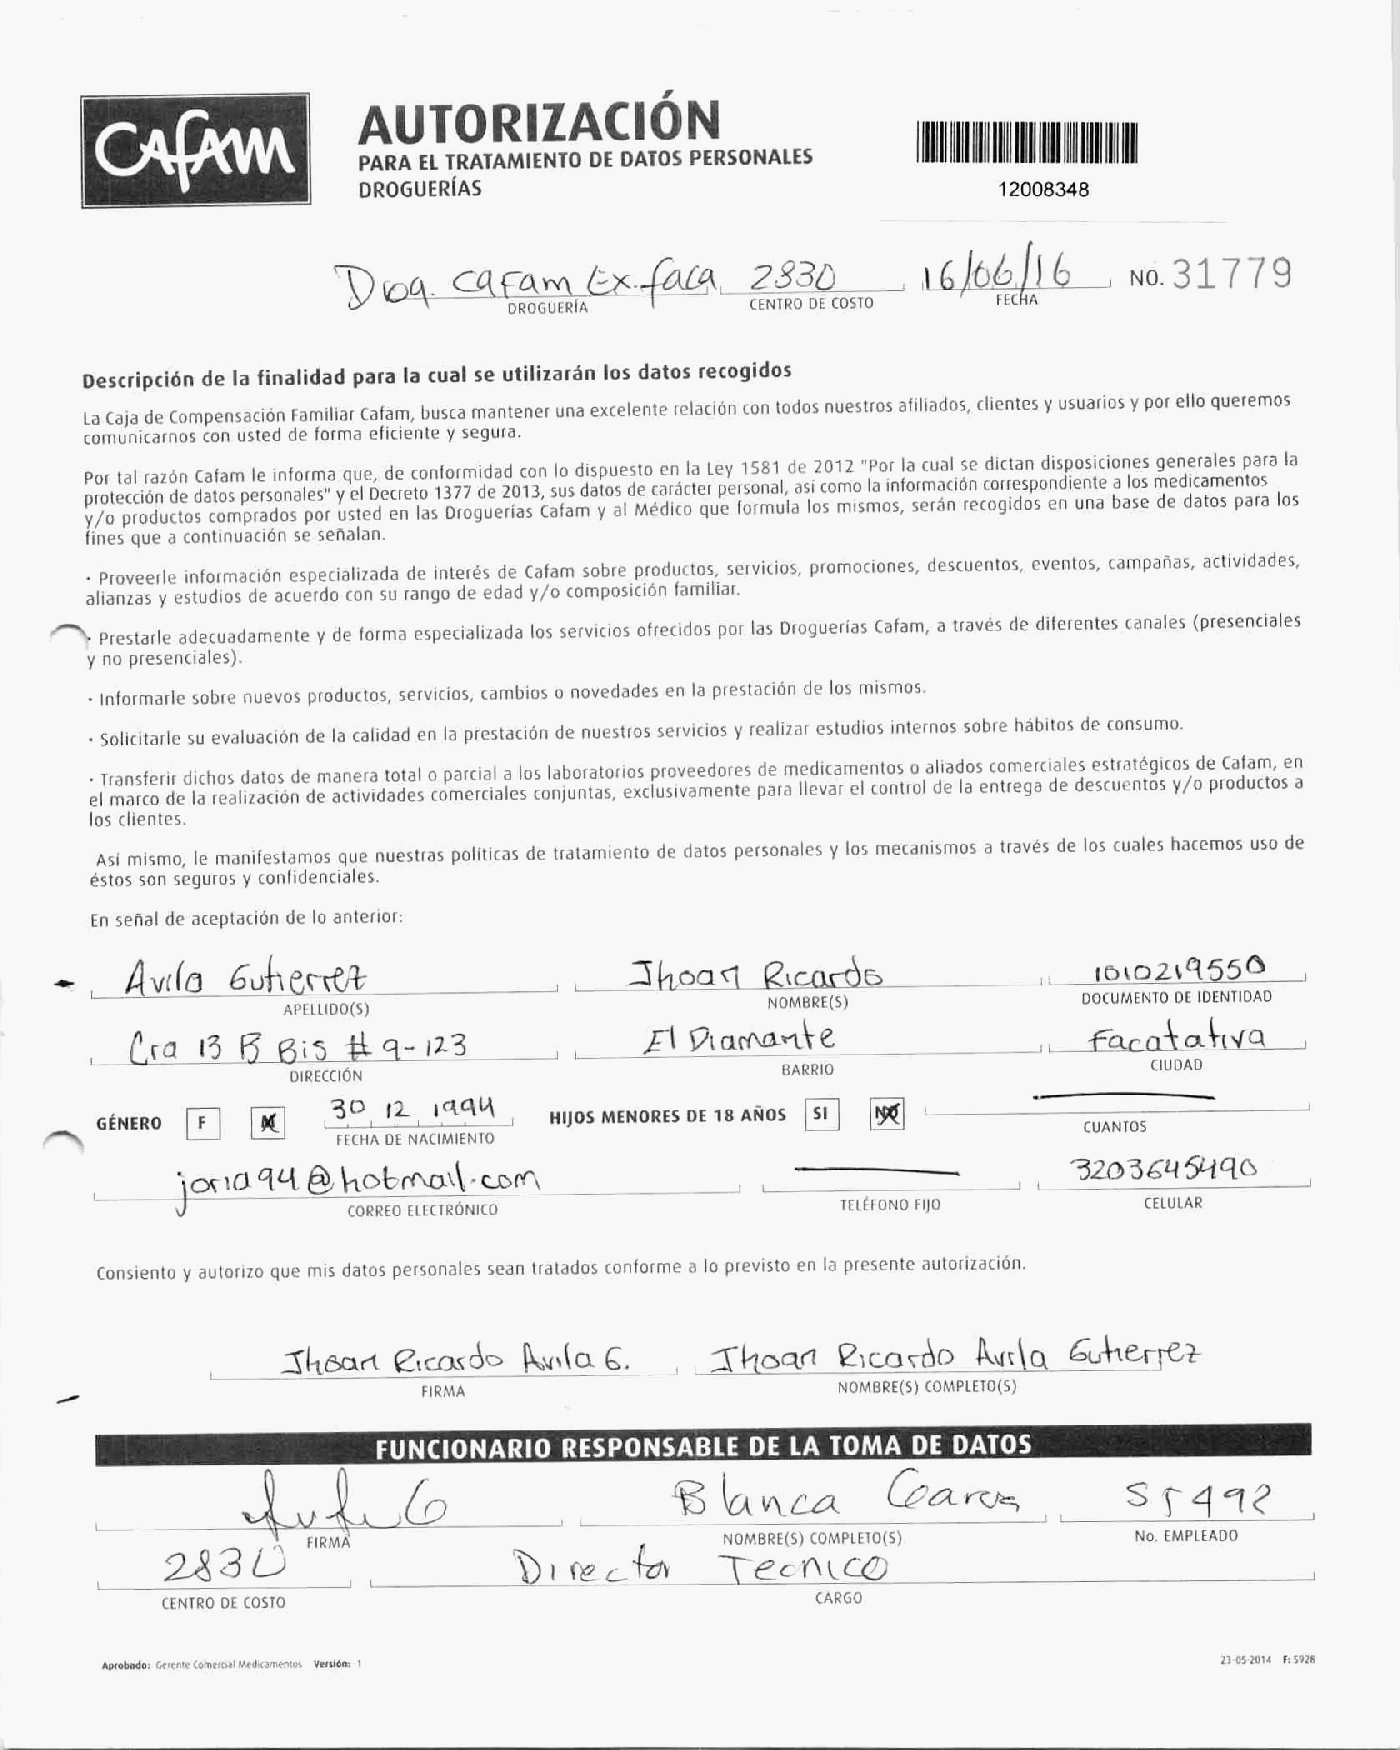 CAFAM
AUTORIZACIÓN
PARA EL TRATAMIENTO DE DATOS PERSONALES
DROGUERÍAS
12008348
Drog. Cafam Ex. faca 2830 16/06/16 NO. 31779
DROGUERÍA CENTRO DE COSTO FECHA
Descripción de la finalidad para la cual se utilizarán los datos recogidos
La Caja de Compensación Familiar Cafam, busca mantener una excelente relación con todos nuestros afiliados, clientes y usuarios y por ello queremos
comunicarnos con usted de forma eficiente y segura.
Por tal razón Cafam le informa que, de conformidad con lo dispuesto en la Ley 1581 de 2012 "Por la cual se dictan disposiciones generales para la
protección de datos personales" y el Decreto 1377 de 2013, sus datos de carácter personal, así como la información correspondiente a los medicamentos
y/o productos comprados por usted en las Droguerías Cafam y al Médico que formula los mismos, serán recogidos en una base de datos para los
fines que a continuación se señalan.
· Proveerle información especializada de interés de Cafam sobre productos, servicios, promociones, descuentos, eventos, campañas, actividades,
alianzas y estudios de acuerdo con su rango de edad y/o composición familiar.
· Prestarle adecuadamente y de forma especializada los servicios ofrecidos por las Droguerías Cafam, a través de diferentes canales (presenciales
y no presenciales).
· Informarle sobre nuevos productos, servicios, cambios o novedades en la prestación de los mismos.
· Solicitarle su evaluación de la calidad en la prestación de nuestros servicios y realizar estudios internos sobre hábitos de consumo.
· Transferir dichos datos de manera total o parcial a los laboratorios proveedores de medicamentos o aliados comerciales estratégicos de Cafam, en
el marco de la realización de actividades comerciales conjuntas, exclusivamente para llevar el control de la entrega de descuentos y/o productos a
los clientes.
Así mismo, le manifestamos que nuestras políticas de tratamiento de datos personales y los mecanismos a través de los cuales hacemos uso de
éstos son seguros y confidenciales.
En señal de aceptación de lo anterior:
Avila Gutierrez Jhoan Ricardo 1010219550
APELLIDO(S) NOMBRE(S) DOCUMENTO DE IDENTIDAD
Cra 13 B Bis # 9-123 El Diamante Facatativa
DIRECCIÓN BARRIO CIUDAD
GÉNERO F M 30 12 1994 HIJOS MENORES DE 18 AÑOS SI NO
FECHA DE NACIMIENTO CUANTOS
joria94@hotmail.com 3203645490
CORREO ELECTRÓNICO TELÉFONO FIJO CELULAR
Consiento y autorizo que mis datos personales sean tratados conforme a lo previsto en la presente autorización.
Jhoan Ricardo Avila G. Jhoan Ricardo Avila Gutierrez
FIRMA NOMBRE(S) COMPLETO(S)
FUNCIONARIO RESPONSABLE DE LA TOMA DE DATOS
Blanca 55492
FIRMA NOMBRE(S) COMPLETO(S) No. EMPLEADO
2830 Director Tecnico
CENTRO DE COSTO CARGO
Aprobado: Gerente Comercial Medicamentos Versión: 1 23-05-2014 F: 5928